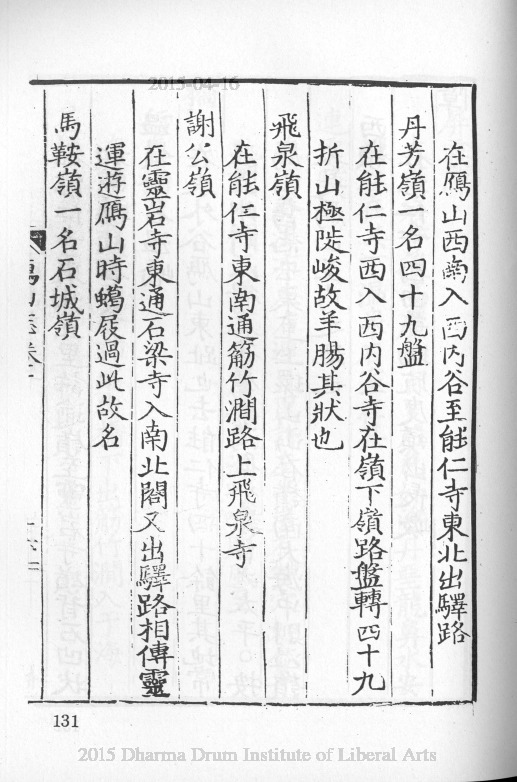 2015-04-16
在鴈山西南入西内谷至能仁寺東北出驛路
丹芳嶺一名四十九盤
在能仁寺西入西内谷寺在嶺下嶺路盤轉四十九
折山極陡峻故羊腸其狀也
飛泉嶺
在能仁寺東南通筋竹澗路上飛泉寺
謝公嶺
在靈岩寺東通石梁寺入南北閣又出驛路相傳靈
運遊鴈山時蠟屐過此故名
馬鞍嶺一名石城嶺
鴈山志卷
131
2015 Dharma Drum Institute of Liberal Arts